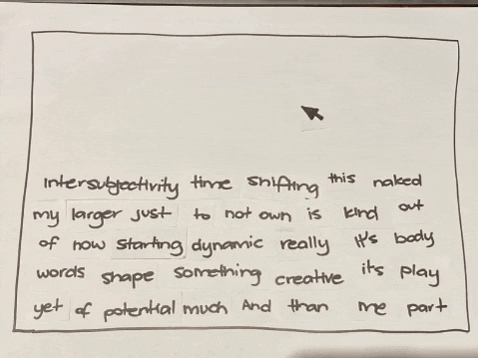 Intersubjectivity time shifting this naked
my larger just to not own is kind out
of now starting dynamic really it's body
words shape something creative its play
yet of potential much And than me part